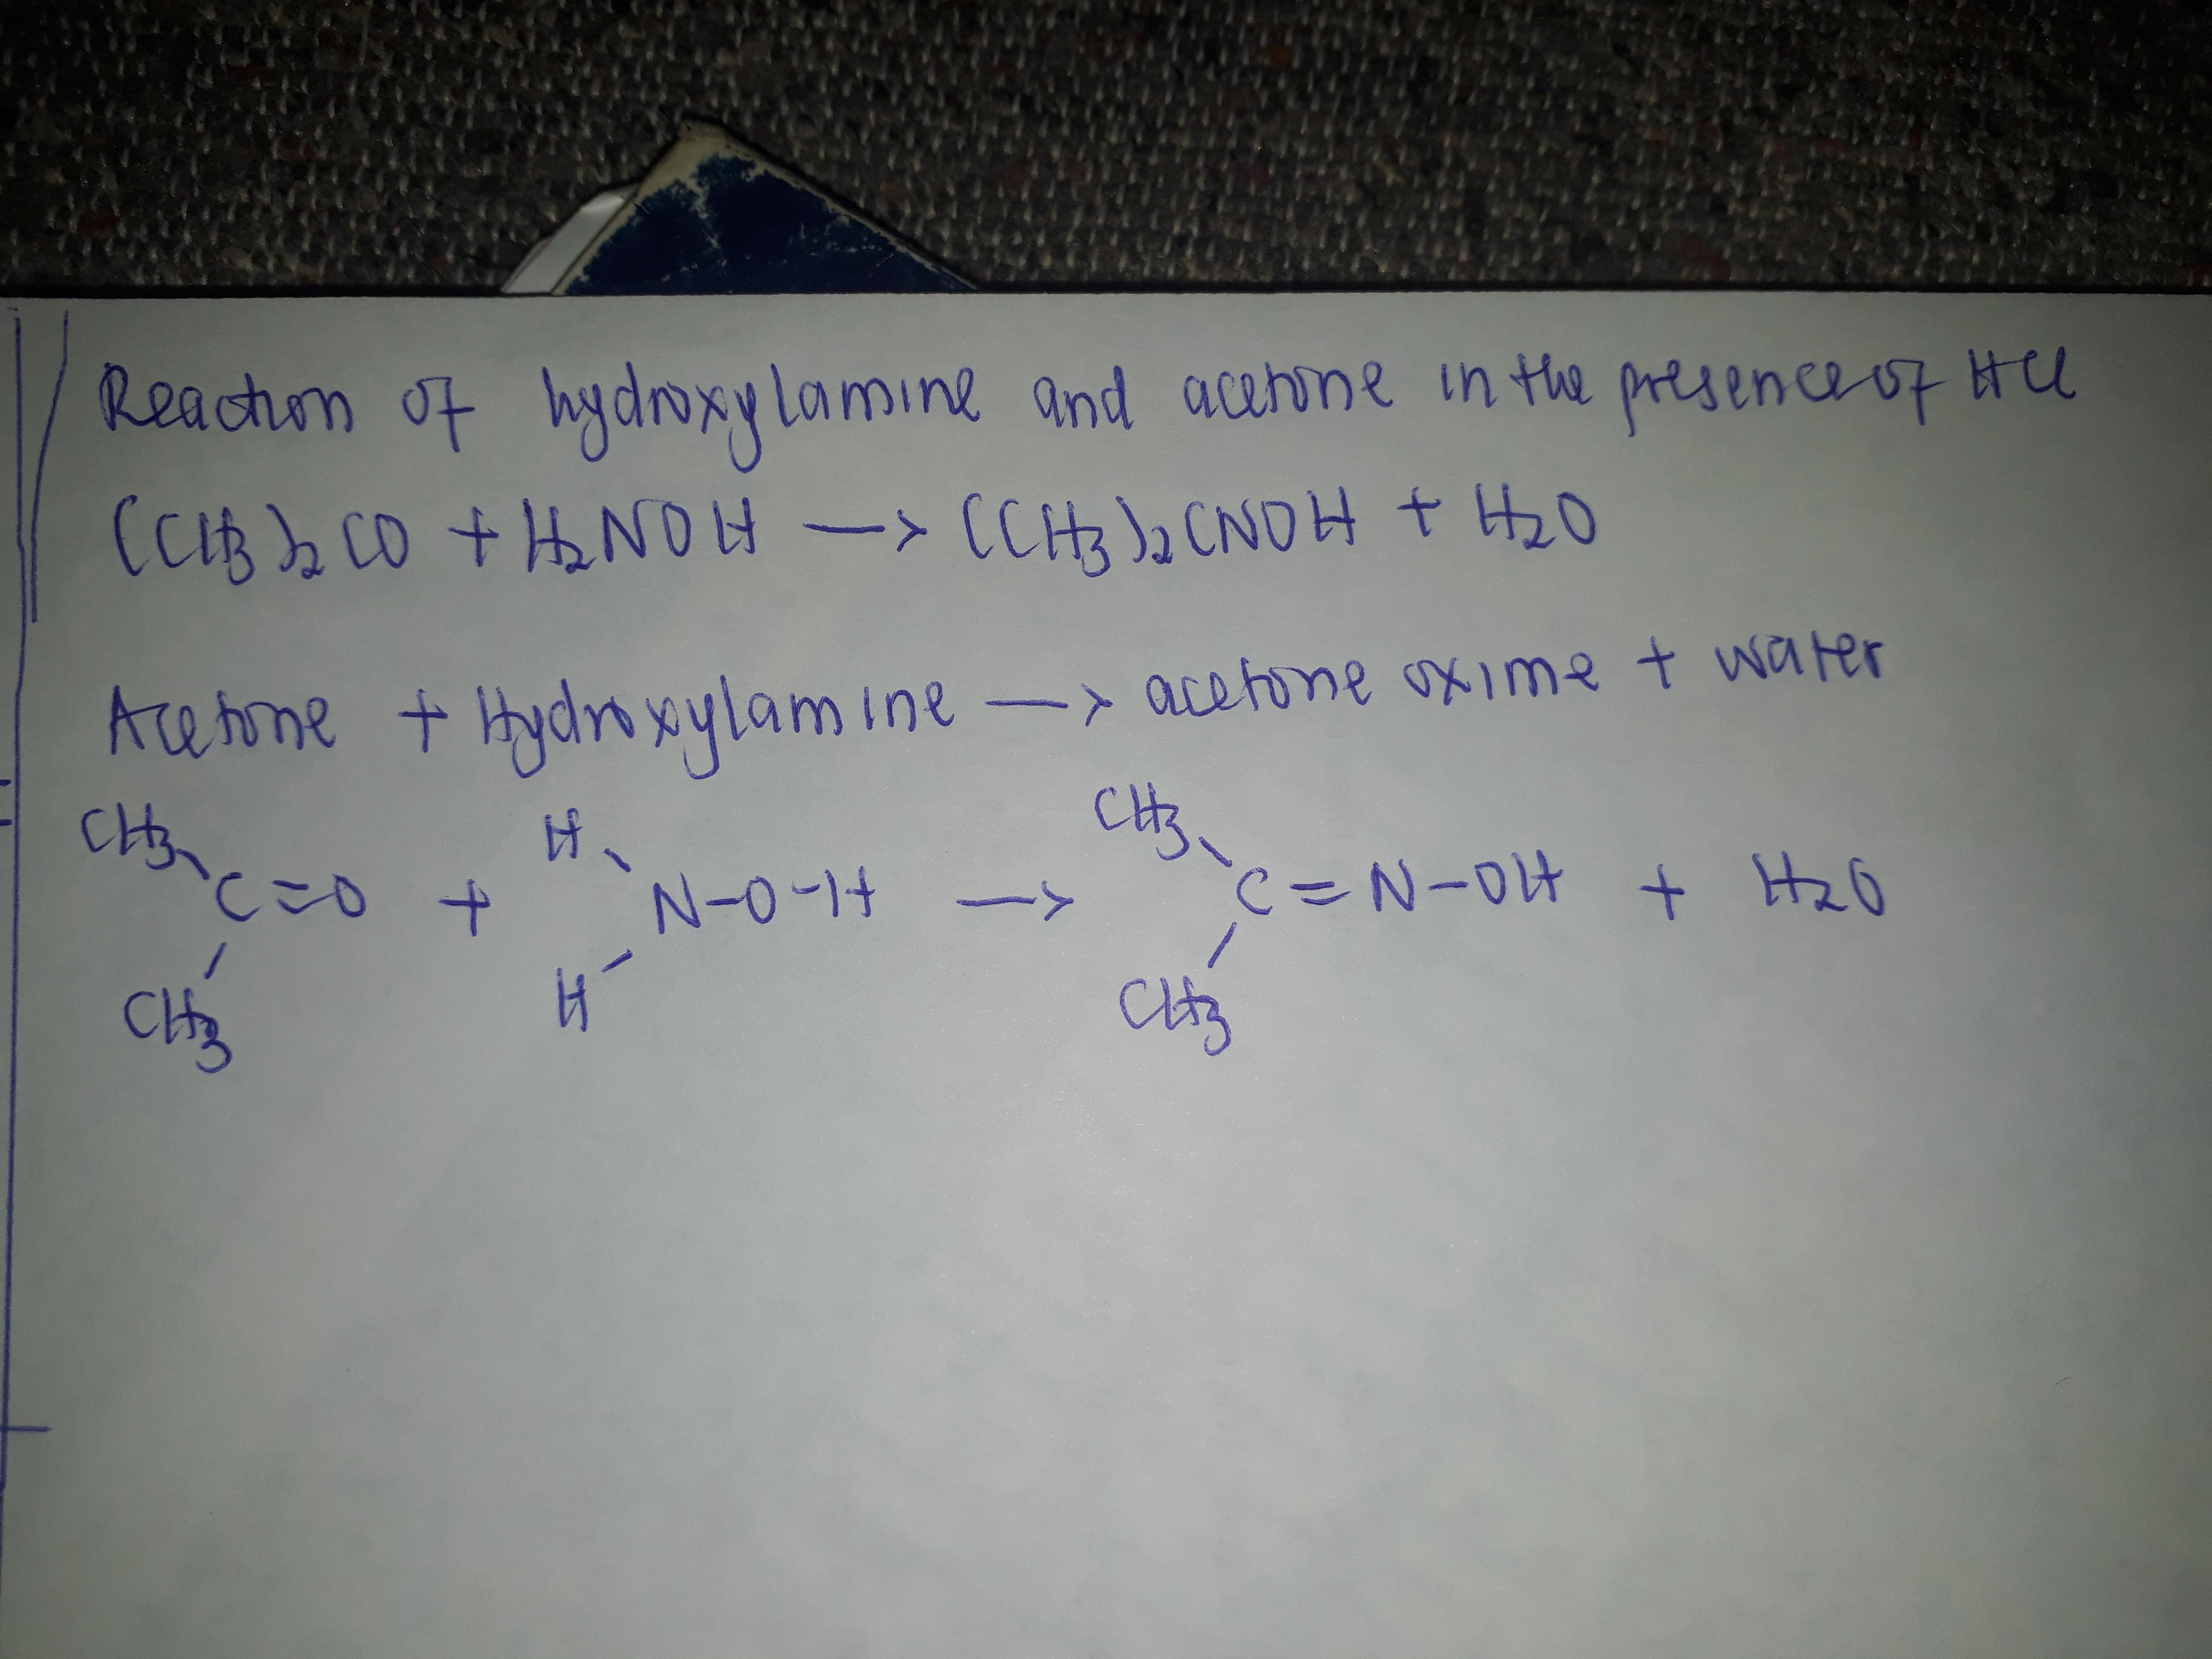 Reaction of hydroxylamine and acetone in the presence of HCl
(CH3)2CO + H2NOH —> (CH3)2CNOH + H2O
Acetone + Hydroxylamine —> acetone oxime + water
CH3 H CH3
C=O + N-O-H —> C=N-OH + H2O
CH3 H CH3